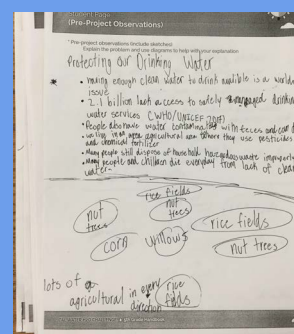 Student Page
(Pre-Project Observations)
* Pre-project observations (include sketches)
Explain the problem and use diagrams to help with your explanation
Protecting our Drinking Water
• having enough clean water to drink is a
issue
• 2.1 billion lack access to safely managed drinking
water services (WHO/UNICEF 2017)
• People also have water with feces and can
• we live in an area agricultural where they use pesticides
and chemical fertilizer
• Many people still dispose of household hazardous waste
• Many people and children die everyday from lack of clean
water-
rice fields
nut
trees
nut
trees
rice fields
corn
willows
nut trees
lots of
agricultural in every
direction
rice
fields